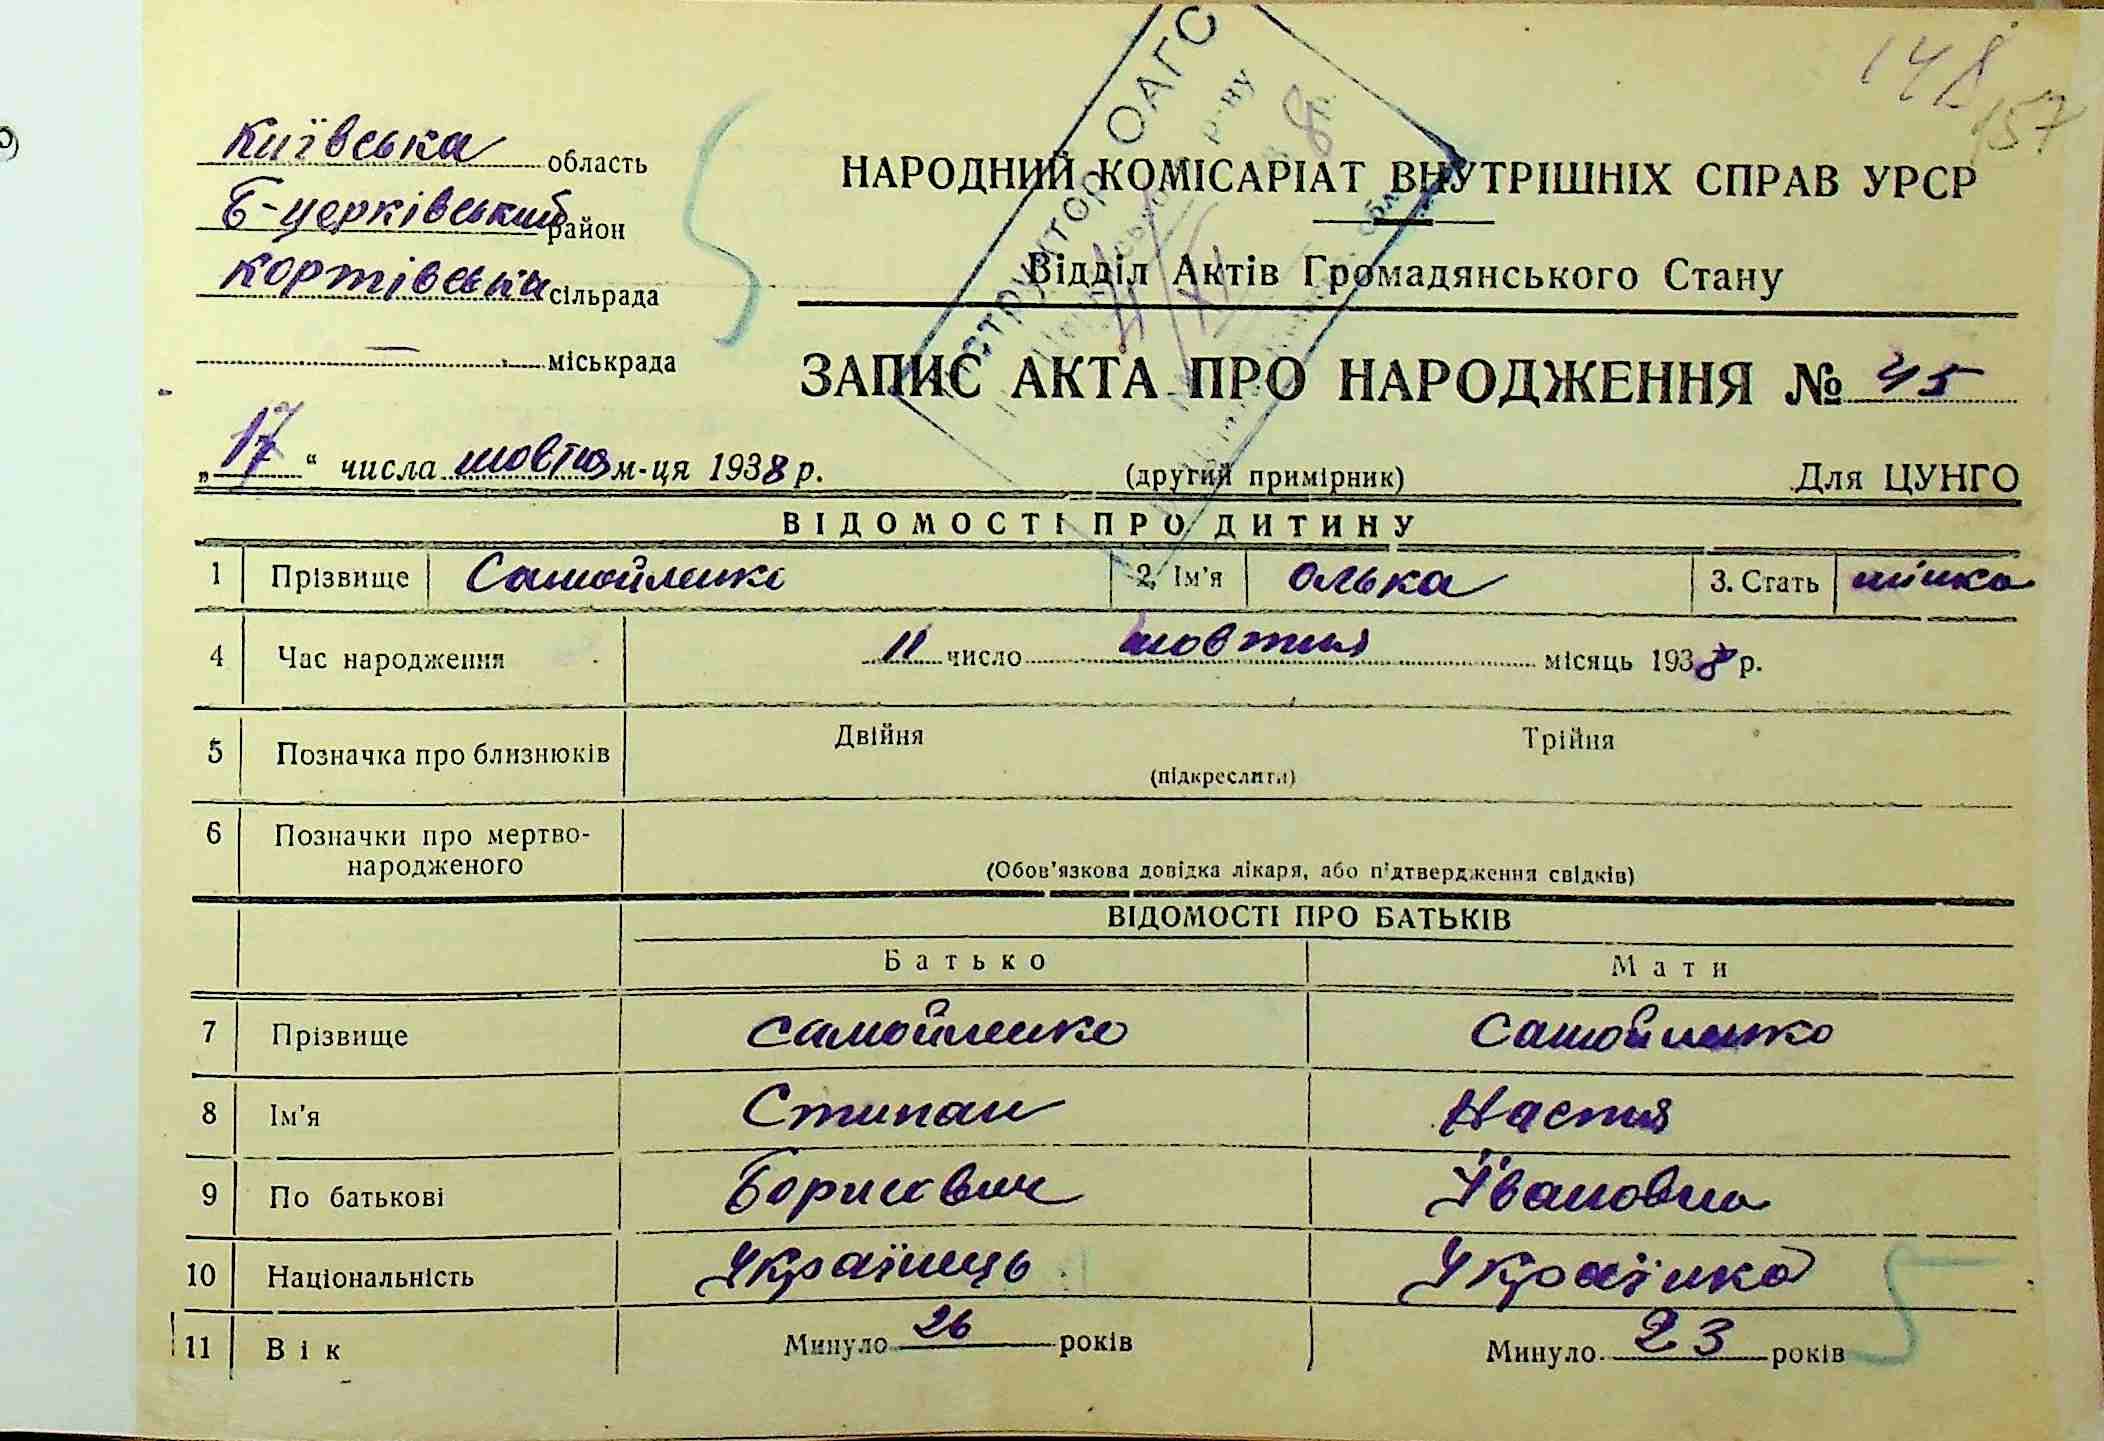 148
157
Київська область
Б-церківський район
сільрада
міськрада
НАРОДНИЙ КОМІСАРІАТ ВНУТРІШНІХ СПРАВ УРСР
Відділ Актів Громадянського Стану
ЗАПИС АКТА ПРО НАРОДЖЕННЯ № 45
„17“ числа жовтня м-ця 1938 р.
(другий примірник)
Для ЦУНГО
ВІДОМОСТІ ПРО ДИТИНУ
1 Прізвище Самойленко 2. Ім'я Олька 3. Стать жінка
4 Час народження 11 число жовтня місяць 1938 р.
5 Позначка про близнюків Двійня Трійня
(підкреслити)
6 Позначки про мертво-
народженого
(Обов'язкова довідка лікаря, або підтвердження свідків)
ВІДОМОСТІ ПРО БАТЬКІВ
Батько Мати
7 Прізвище Самойленко Самойленко
8 Ім'я Стипан Настя
9 По батькові Борисович Івановна
10 Національність Українець Українка
11 Вік Минуло 26 років Минуло 23 років